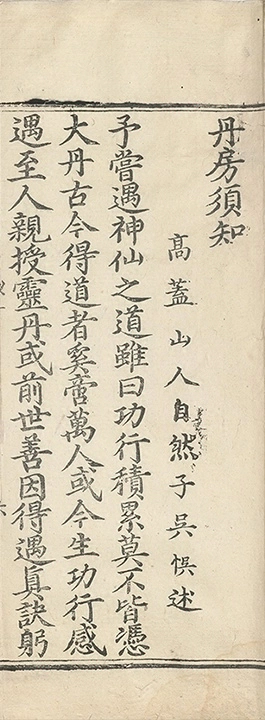 丹房須知
高蓋山人自然子吳悞述
予嘗遇神仙之道雖曰功行積累莫不皆憑
大丹古今得道者奚啻萬人或今生功行感
遇至人親授靈丹或前世善因得遇真訣躬